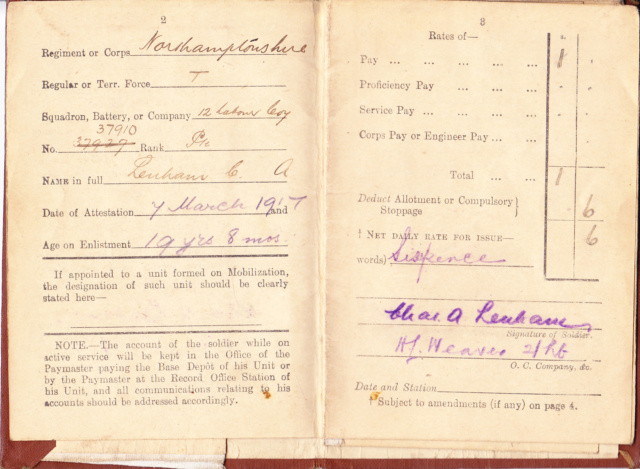 2
Regiment or Corps Northamptonshire
Regular or Terr. Force T
Squadron, Battery, or Company 12 Labour Coy
37910
No. 37937 Rank Pte
NAME in full Lenham C. A
Date of Attestation 7 March 1917 and
Age on Enlistment 19 yrs 8 mos.
If appointed to a unit formed on Mobilization,
the designation of such unit should be clearly
stated here—
NOTE.—The account of the soldier while on
active service will be kept in the Office of the
Paymaster paying the Base Depôt of his Unit or
by the Paymaster at the Record Office Station of
his Unit, and all communications relating to his
accounts should be addressed accordingly.
3
Rates of—
Pay ... ... ... ... ... 1 .
Proficiency Pay ... ... ... . .
Service Pay ... ... ... ... . .
Corps Pay or Engineer Pay ... ... .
Total ... ... 1
Deduct Allotment or Compulsory
Stoppage } . 6
† NET DAILY RATE FOR ISSUE— 6
words) Sixpence
Chas A Lenham
Signature of Soldier.
HJ. Weaver 2/Lt
O. C. Company, &c.
Date and Station
† Subject to amendments (if any) on page 4.